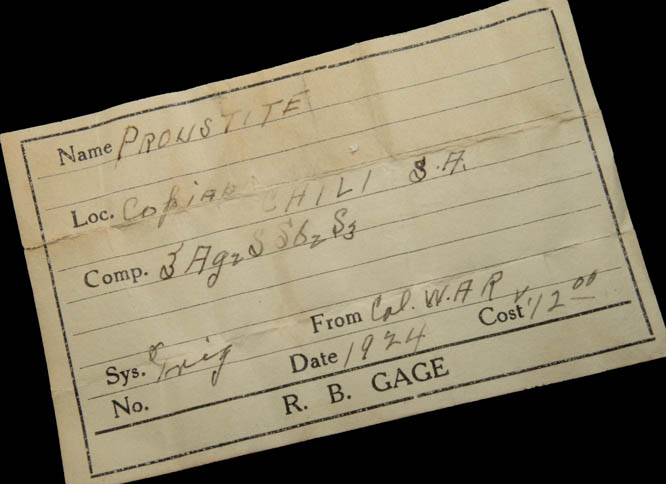 Name PROUSTITE
Loc. Copiap CHILI S.A.
Comp. 3 Ag2S Sb2S3
Sys. Trig From Col. W.A.R Cost 12 00
No. Date 1924
R. B. GAGE